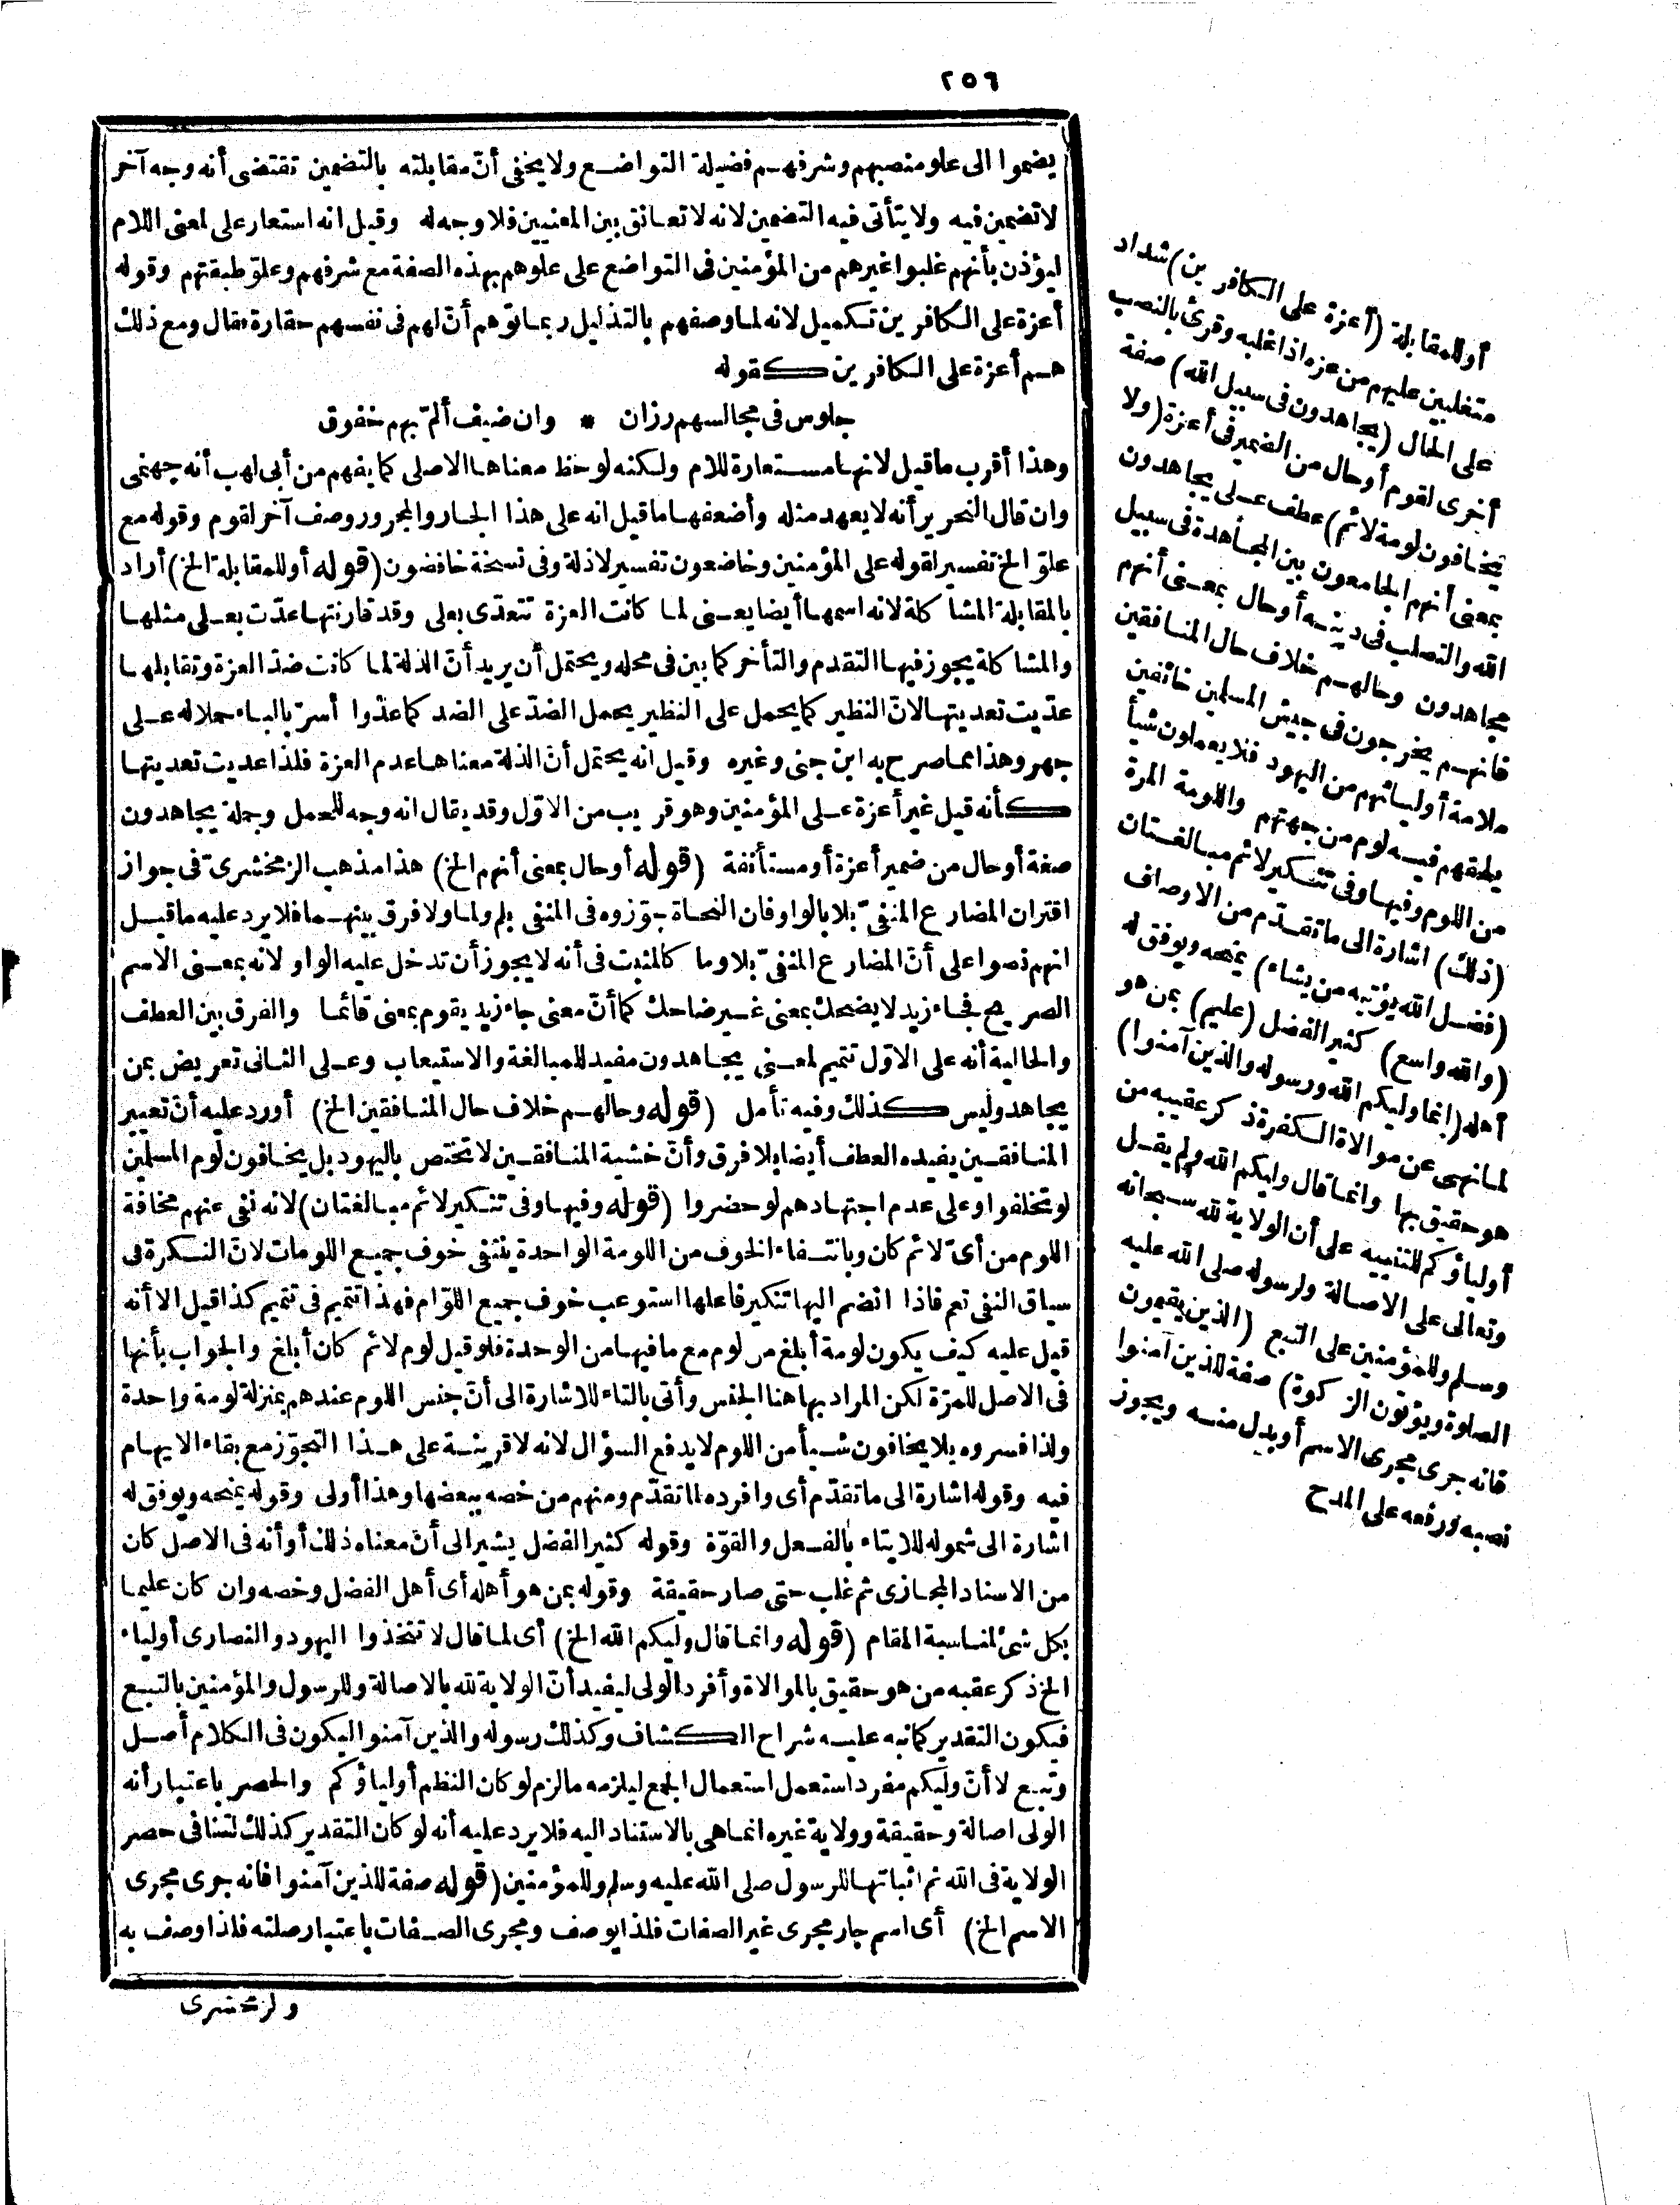 ٢٥٦
يضموا الى علو منصبهم وشرفهم فضيلة التواضع ولا يخفى أنّ مقابلته بالتضمين تقتضى أنه وجه آخر
لا تضمين فيه ولا يتأتى فيه التضمين لانه لا تعانق بين المعنيين فلا وجه له وقيل انه استعار على لمعنى اللام
ليؤذن بأنهم غلبوا غيرهم من المؤمنين فى التواضع على علوهم بهذه الصفة مع شرفهم وعلوّ طبقتهم وقوله
أعزة على الكافرين تكميل لانه لما وصفهم بالتذليل ربما توّهم أنّ لهم فى نفسهم حقارة فقال ومع ذلك
هم أعزة على الكافرين كقوله
جلوس فى مجالسهم رزان * وان ضيف ألمّ بهم خفوق
وهذا أقرب ما قيل لانها مستعارة للام ولكنه لوحظ معناها الاصلى كما يفهم من أبى لهب أنه جهنمى
وان قال النحرير أنه لا يعهد مثله وأضعفها ما قيل انه على هذا الجار والمجرور وصف آخر لقوم وقوله مع
علوّ الخ تفسير لقوله على المؤمنين وخاضعون تفسير لاذلة وفى نسخة خافضون (قوله أو للمقابلة الخ) أراد
بالمقابلة المشاكلة لانه اسمها أيضا يعنى لما كانت العزة تتعدّى بعلى وقد قارنتها عدّت بعلى مثلها
والمشاكلة يجوز فيها التقدم والتأخر كما بين فى محله ويحتمل أن يريد أنّ الذلة لما كانت ضدّ العزة وتقابلها
عدّيت تعديتها لانّ النظير كما يحمل على النظير يحمل الضدّ على الضد كما عدّوا أسرّ بالباء حملا له على
جهر وهذا مما صرح به ابن جنى وغيره وقيل انه يحتمل أنّ الذلة معناها عدم العزة فلذا عديت تعديتها
كأنه قيل غير أعزة على المؤمنين وهو قريب من الاوّل وقد يقال انه وجه للحمل وجملة يجاهدون
صفة أو حال من ضمير أعزة أو مستأنفة (قوله أو حال بمعنى أنهم الخ) هذا مذهب الزمخشرىّ فى جواز
اقتران المضارع المنفىّ بلا بالواو فان النحاة جوّزوه فى المنفى بلم ولما ولا فرق بينهما فلا يرد عليه ما قيل
انهم نصوا على أنّ المضارع المنفىّ بلا وما كالمثبت فى أنه لا يجوز أن تدخل عليه الواو لانه بمعنى الاسم
الصريح فجاء زيد لا يضحك بمعنى غير ضاحك كما أنّ معنى جاء زيد يقوم بمعنى قائما والفرق بين العطف
والحالية أنه على الاوّل تتميم لمعنى يجاهدون مفيد للمبالغة والاستيعاب وعلى الثانى تعريض بمن
يجاهد وليس كذلك وفيه تأمل (قوله وحالهم خلاف حال المنافقين الخ) أورد عليه أنّ تعيير
المنافقين يفيده العطف أيضا بلا فرق وأنّ خشية المنافقين لا تختص باليهود بل يخافون لوم المسلمين
لو تخلفوا وعلى عدم اجتهادهم لو حضروا (قوله وفيها وفى تنكير لائم مبالغتان) لانه نفى عنهم مخافة
اللوم من أىّ لائم كان وبانتفاء الخوف من اللومة الواحدة ينتفى خوف جميع اللومات لانّ النكرة فى
سياق النفى تعم فاذا انضم اليها تنكير فاعلها استوعب خوف جميع اللوّام فهذا تتميم فى تتميم كذا قيل الا أنه
قيل عليه كيف يكون لومة أبلغ من لوم مع ما فيها من الوحدة فلو قيل لوم لائم كان أبلغ والجواب بأنها
فى الاصل للمرّة لكن المراد بها هنا الجنس وأتى بالتاء للاشارة الى أنّ جنس اللوم عندهم بمنزلة لومة واحدة
ولذا فسروه بلا يخافون شيأ من اللوم لا يدفع السؤال لانه لا قرينة على هذا التجوّز مع بقاء الايهام
فيه وقوله اشارة الى ما تقدّم أى وافرده لما تقدّم ومنهم من خصه ببعضها وهذا أولى وقوله يمنحه ويوفق له
اشارة الى شموله للايتاء بالفعل والقوّة وقوله كثير الفضل يشير الى أنّ معناه ذلك أو أنه فى الاصل كان
من الاسناد المجازى ثم غلب حتى صار حقيقة وقوله بمن هو أهله أى أهل الفضل وخصه وان كان عليما
بكل شئ لمناسبة المقام (قوله وانما قال وليكم الله الخ) أى لما قال لا تتخذوا اليهود والنصارى أولياء
الخ ذكر عقبه من هو حقيق بالموالاة وأفرد الولى ليفيد أنّ الولاية لله بالاصالة وللرسول والمؤمنين بالتبع
فيكون التقدير كما نبه عليه شراح الكشاف وكذلك رسوله والذين آمنوا ليكون فى الكلام أصل
وتبع لا أنّ وليكم مفرد استعمل استعمال الجمع ليلزمه ما لزم لو كان النظم أولياؤكم والحصر باعتبار أنه
الولى اصالة وحقيقة وولاية غيره انما هى بالاستناد اليه فلا يرد عليه أنه لو كان التقدير كذلك لتنافى حصر
الولاية فى الله ثم اثباتها للرسول صلى الله عليه وسلم وللمؤمنين (قوله صفة للذين آمنوا فانه جرى مجرى
الاسم الخ) أى اسم جار مجرى غير الصفات فلذا يوصف ومجرى الصفات باعتبار صلته فلذا وصف به
أو للمقابلة (أعزة على الكافرين) شداد
متغلبين عليهم من عزه اذا غلبه وقرئ بالنصب
على الحال (يجاهدون فى سبيل الله) صفة
أخرى لقوم أو حال من الضمير فى أعزة (ولا
يخافون لومة لائم) عطف على يجاهدون
بمعنى أنهم الجامعون بين المجاهدة فى سبيل
الله والتصلب فى دينه أو حال بمعنى أنهم
مجاهدون وحالهم خلاف حال المنافقين
فانهم يخرجون فى جيش المسلمين خائفين
ملامة أوليائهم من اليهود فلا يعملون شيأ
يلحقهم فيه لوم من جهتهم واللومة المرة
من اللوم وفيها وفى تنكير لائم مبالغتان
(ذلك) اشارة الى ما تقدّم من الاوصاف
(فضل الله يؤتيه من يشاء) يمنحه ويوفق له
(والله واسع) كثير الفضل (عليم) بمن هو
أهله (انما وليكم الله ورسوله والذين آمنوا)
لما نهى عن موالاة الكفرة ذكر عقيبه من
هو حقيق بها وانما قال وليكم الله ولم يقل
أولياؤكم للتنبيه على أن الولاية لله سبحانه
وتعالى على الاصالة ولرسوله صلى الله عليه
وسلم وللمؤمنين على التبع (الذين يقيمون
الصلوة ويؤتون الزكوة) صفة للذين آمنوا
فانه جرى مجرى الاسم أو بدل منه ويجوز
نصبه ورفعه على المدح